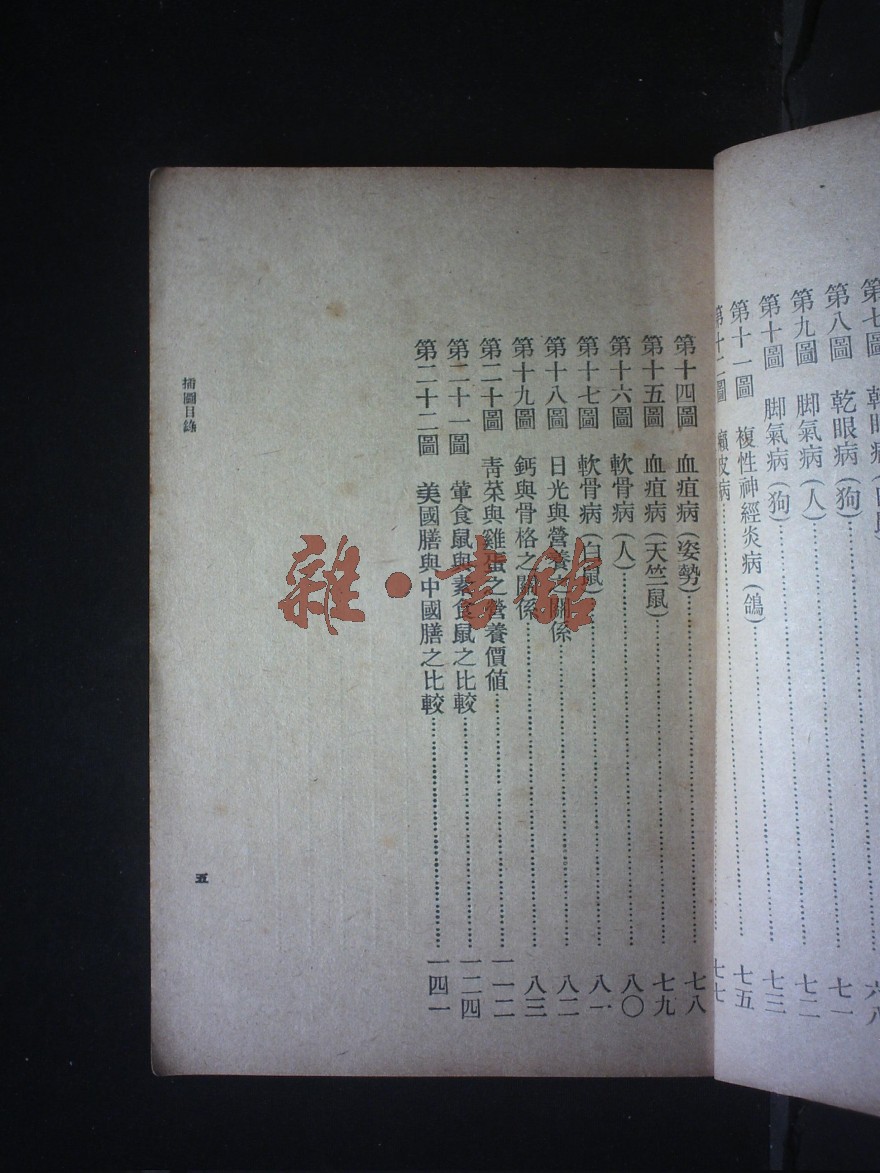 第八圖 乾眼病(狗)……七一
第九圖 脚氣病(人)……七二
第十圖 脚氣病(狗)……七三
第十一圖 複性神經炎病(鴿)……七五
第十二圖 癩皮病……七七
第十四圖 血疽病(姿勢)……七八
第十五圖 血疽病(天竺鼠)……七九
第十六圖 軟骨病(人)……八〇
第十七圖 軟骨病(白鼠)……八一
第十八圖 日光與營養之關係……八二
第十九圖 鈣與骨格之關係……八三
第二十圖 靑菜與雞蛋之營養價值……一一二
第二十一圖 葷食鼠與素食鼠之比較……一二四
第二十二圖 美國膳與中國膳之比較……一四一
插圖目錄
五
雜·書館